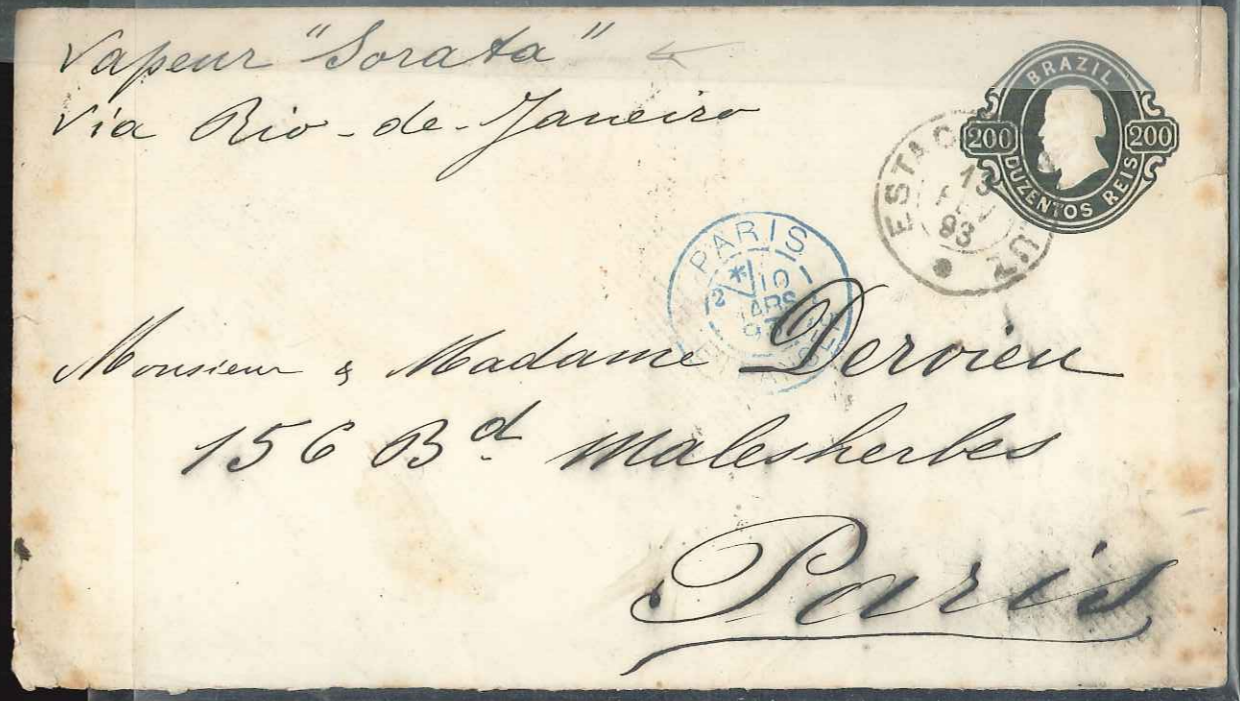 Vapeur "Sorata"
Via Rio-de-Janeiro
BRAZIL
200 200
DUZENTOS REIS
LUZ
13
FEV
93
PARIS
10
93
Monsieur & Madame Dervieu
156 Bd. Malesherbes
Paris